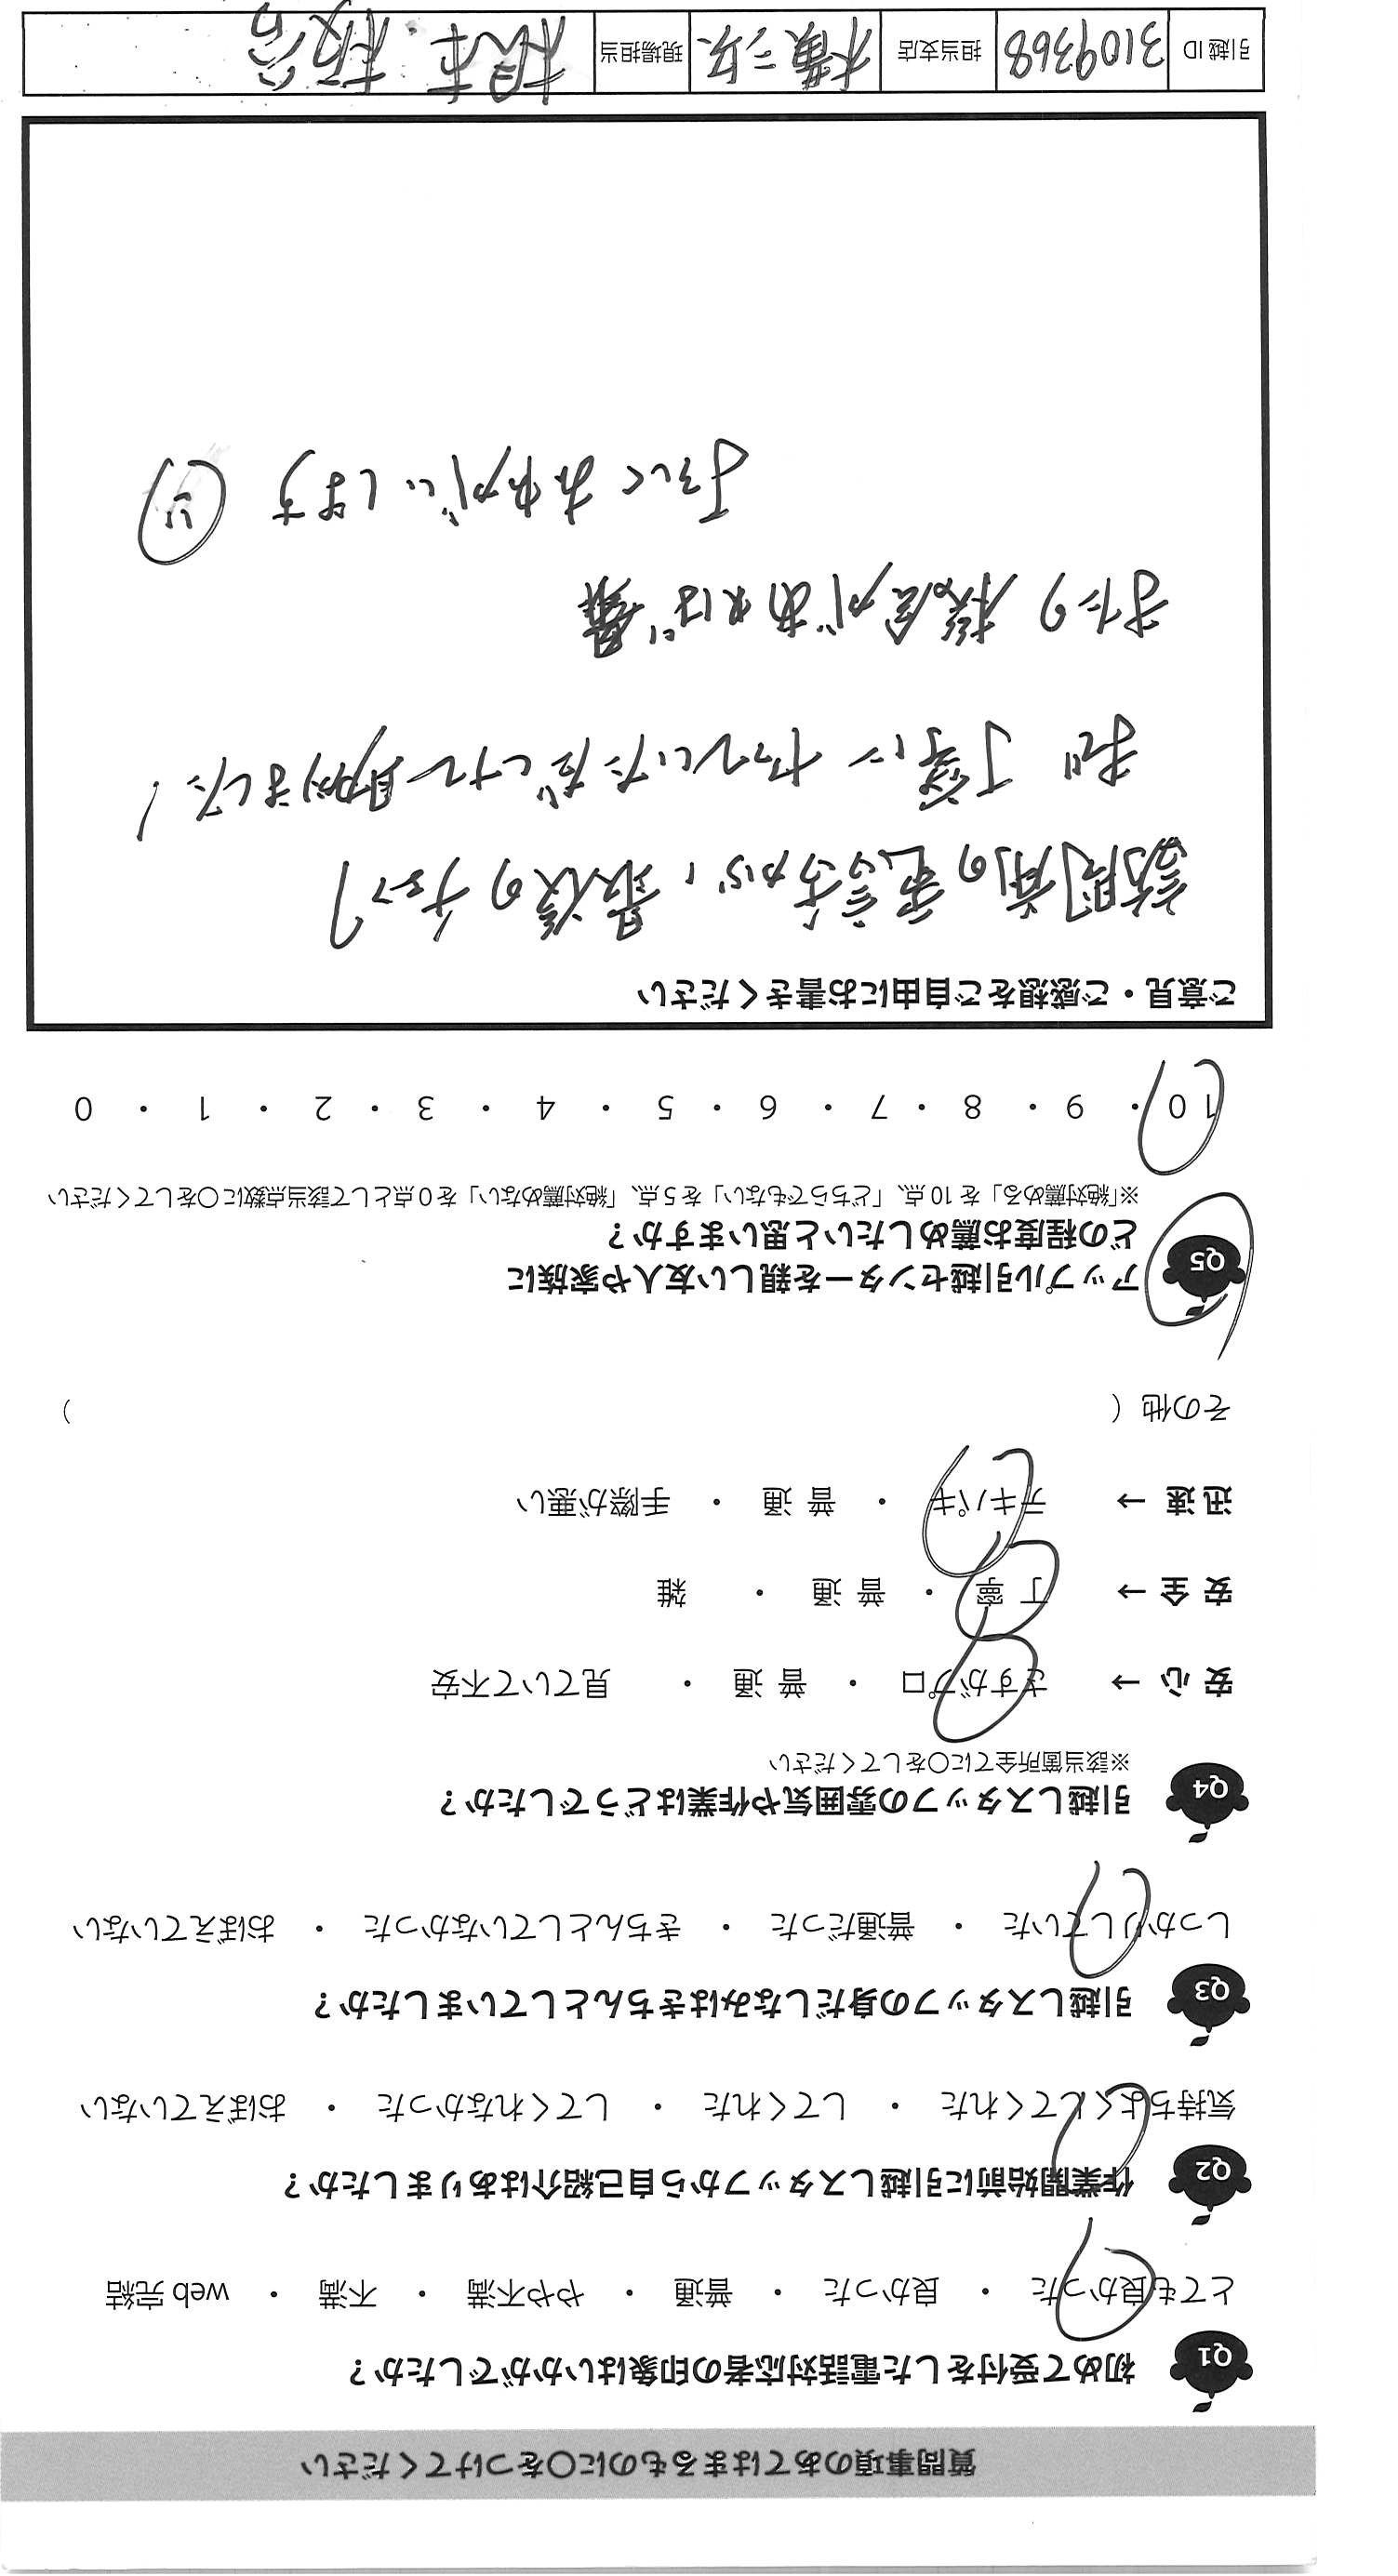 質問事項のあてはまるものに〇をつけてください
Q1 初めて受付をした電話対応者の印象はいかがでしたか？
とても良かった ・ 良かった ・ 普通 ・ やや不満 ・ 不満 ・ web 完結
Q2 作業開始前に引越しスタッフから自己紹介はありましたか？
気持ちよくしてくれた ・ してくれた ・ してくれなかった ・ おぼえていない
Q3 引越しスタッフの身だしなみはきちんとしていましたか？
しっかりしていた ・ 普通だった ・ きちんとしていなかった ・ おぼえていない
Q4 引越しスタッフの雰囲気や作業はどうでしたか？
※該当箇所全てに〇をしてください
安心 → さすがプロ ・ 普通 ・ 見ていて不安
安全 → 丁寧 ・ 普通 ・ 雑
迅速 → テキパキ ・ 普通 ・ 手際が悪い
その他（ ）
Q5 アップル引越センターを親しい友人や家族に
どの程度お薦めしたいと思いますか？
※「絶対薦める」を10点、「どちらでもない」を5点、「絶対薦めない」を0点として該当点数に〇をしてください
10 ・ 9 ・ 8 ・ 7 ・ 6 ・ 5 ・ 4 ・ 3 ・ 2 ・ 1 ・ 0
ご意見・ご感想をご自由にお書きください
訪問前の電話から、最後のチェック
まで 丁寧に やっていただけて助かりました！
またの機会があれば是非
よろしくおねがいします
引越ID 3109368 担当支店 横二 現場担当 根本・板谷